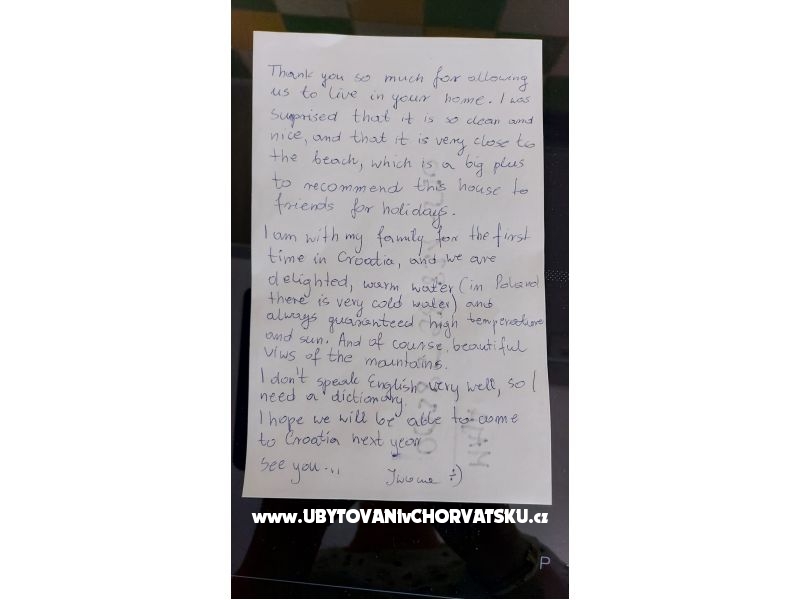 Thank you so much for allowing
us to live in your home. I was
suprised that it is so clean and
nice, and that it is very close to
the beach, which is a big plus
to recommend this house to
friends for holidays.
I am with my family for the first
time in Croatia, and we are
delighted, warm water (in Poland
there is very cold water) and
always guaranteed high temperature
and sun. And of course, beautiful
viws of the mountains.
I don't speak English very well, so I
need a dictionary.
I hope we will be able to come
to Croatia next year
See you...
Iwona :)
www.UBYTOVANIvCHORVATSKU.cz
P